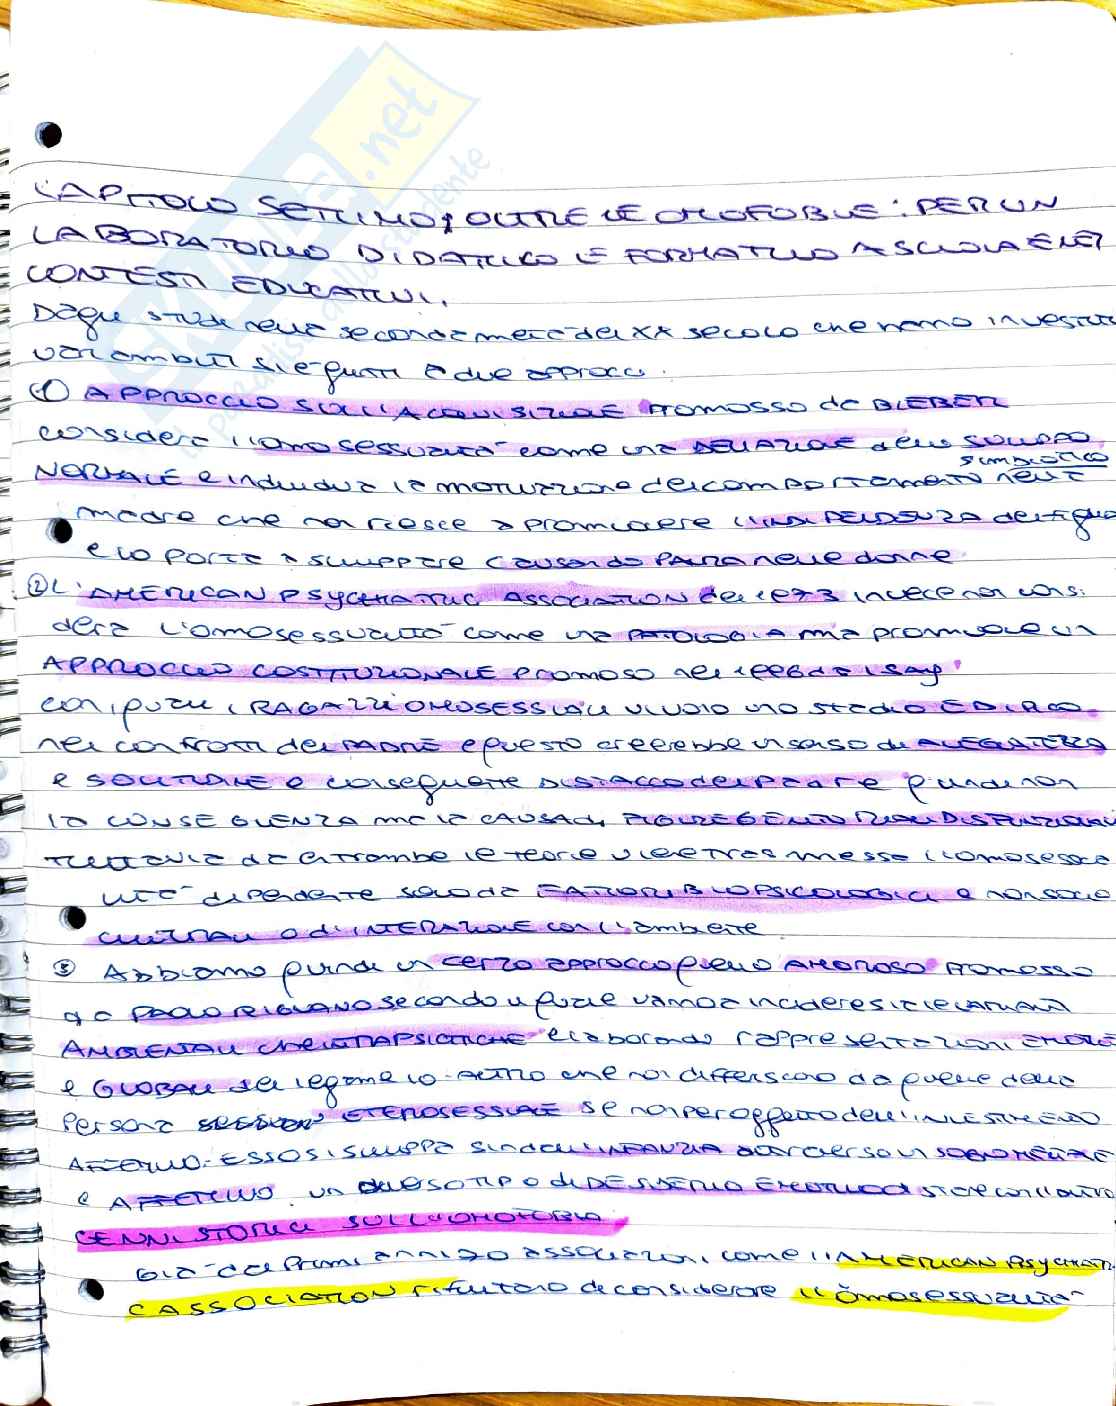 CAPITOLO SETTIMO: OLTRE LE OMOFOBIE: PER UN
LABORATORIO DIDATTICO E FORMATIVO A SCUOLA E NEI
CONTESTI EDUCATIVI.
Dagli studi nella seconda metà del XX secolo che hanno investito
vari ambiti si è giunti a due approcci.
① APPROCCIO SULL'ACQUISIZIONE promosso da BIEBER
considera l'omosessualità come una DEVIAZIONE dello SVILUPPO
SIMBIOTICO
NORMALE e individua la motivazione del comportamento nella
madre che non riesce a promuovere l'INDIPENDENZA del figlio
e lo porta a sviluppare causando PAURA nelle donne
② L'AMERICAN PSYCHIATRIC ASSOCIATION del 1973 invece non consi
dera l'omosessualità come una PATOLOGIA ma promuove un
APPROCCIO COSTITUZIONALE promosso nel da Isay
con i RAGAZZI OMOSESSUALI VIVONO uno stadio EDIPICO
nei confronti del PADRE e questo creerebbe un senso di
e SOLITUDINE e conseguente DISTACCO del padre quindi non
la CONSEGUENZA ma la CAUSA di FIGURE GENITORIALI DISFUNZIONALI
TUTTAVIA da entrambe le teorie viene trasmessa l'omosessua
lità dipendente solo da FATTORI BIOPSICOLOGICI e non socio
CULTURALI o di INTERAZIONE con l'ambiente
③ Abbiamo quindi un terzo approccio quello AMOROSO promosso
da PAOLO RIGLIANO secondo il quale vanno a incidere sia le
AMBIENTALI che INTRAPSICHICHE elaborando rappresentazioni
e GLOBALI del legame io-ALTRO che non differiscono da quelle della
Persona ETEROSESSUALE se non per oggetto dell'INVESTIMENTO
AFFETTIVO. ESSO si sviluppa sin dall'INFANZIA attraverso un
e AFFETTIVO un DIVERSO TIPO di DESIDERIO EMOTIVO di stare con l'altro
CENNI STORICI SULL'OMOFOBIA
Già dai primi anni 70 associazioni come l'AMERICAN PSYCHIATRI
C ASSOCIATION rifiutano di considerare l'omosessualità
SKUOLA.net
il paradiso dello studente